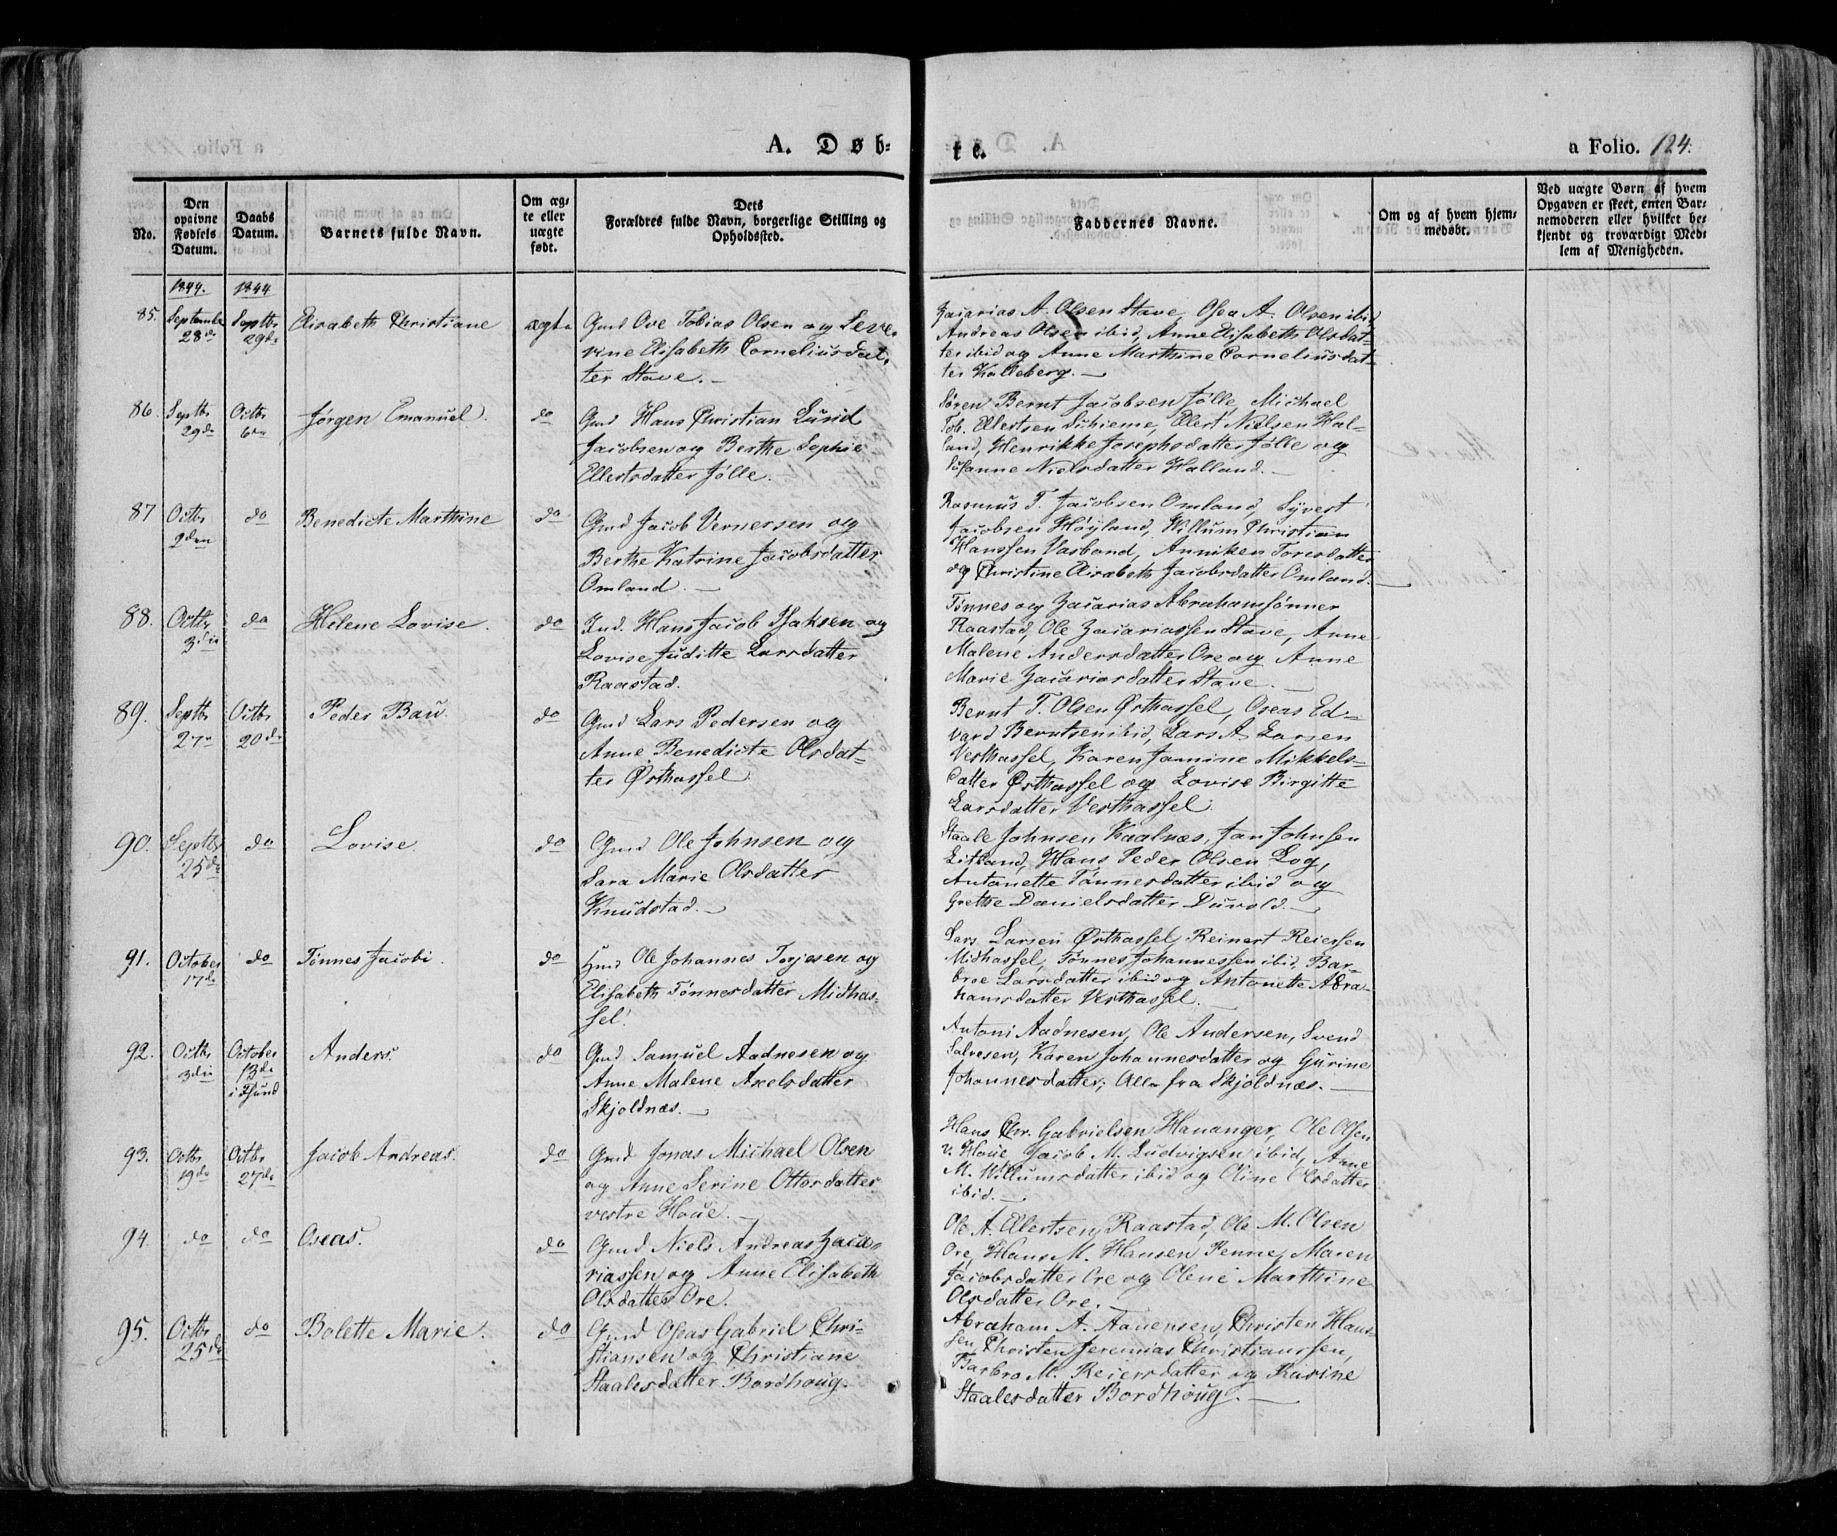 A. Døb=
te.
a Folio. 124.
No.
Den opgivne Fødsels Datum.
Daabs Datum.
Barnets fulde Navn.
Om ægte eller uægte født.
Dets Forældres fulde Navn, borgerlige Stilling og Opholdssted.
Faddernes Navne.
Om og af hvem hjemmedøbt.
Ved uægte Børn af hvem Opgaven er skeet, enten Barnemoderen eller hvilket bekjendt og troværdigt Medlem af Menigheden.
1844. 1844
85. September 28de Septbr 29de Elisabeth Christiane ægte
Gmd Ove Tobias Olsen og Seve-
rine Elisabeth Corneliusdat-
ter Stave.
Zacarias A. Olsen Stave, Osea A. Olsen ibid,
Andreas Olsen ibid, Anne Elisabeth Olsdat-
ter ibid og Anne Marthine Corneliusdat-
ter Kalleberg.
86. Septbr 29de Octbr 6te Jørgen Emanuel. do
Gmd Hans Christian Lund
Jacobsen og Berthe Sophie
Ellertsdatter Jølle.
Søren Bernt Jacobsen Jølle, Michael
Tob. Ellertsen Schieme, Ellert Nielsen Hal-
land, Henrikke Josephsdatter Jølle og
Susanne Nielsdatter Halland.
87 Octbr 2den do Benedicte Marthine do
Gmd Jacob Vernersen og
Berthe Katrine Jacobsdatter
Omland.
Rasmus T. Jacobsen Omland, Syvert
Jacobsen Høyland, Willum Christian
Hanssen Vasband, Anniken Toresdatter
og Christine Elisabeth Jacobsdatter Omland.
88. Octbr 3die do Helene Lovise. do
Ind. Hans Jacob Isaksen og
Lovise Juditte Larsdatter
Raastad.
Tønnes og Zacarias Abrahamsønner
Raastad, Ole Zacariassen Stave, Anne
Malene Andersdatter Ore og Anne
Marie Zacariasdatter Stave.
89. Septbr 27de Octbr 20de Peder Bau. do
Gmd Lars Pedersen og
Anne Benedicte Olsdat-
ter Østhassel
Bernt T. Olsen Østhassel, Oseas Ed-
vard Berntsen ibid, Lars A. Larsen
Vesthassel, Karen Jamine Mikkels-
datter Østhassel og Lovise Birgitte
Larsdatter Vesthassel.
90. Septbr 25de do Lovise do
Gmd Ole Johnsen og
Sara Marie Olsdatter
Knudstad.
Staale Johnsen Kaalnæs, Jan Johnsen
Litland, Hans Peder Olsen Log,
Antonette Tønnesdatter ibid og
Grethe Danielsdatter Duvold.
91. October 17de do Tønnes Jacobi. do
Hmd Ole Johannes Torjesen og
Elisabeth Tønnesdatter Midhas-
sel.
Lars Larsen Østhassel, Reinert Reiersen
Midhassel, Tønnes Johannessen ibid, Bar-
broe Larsdatter ibid og Antonette Abra-
hamsdatter Vesthassel.
92. Octbr 3die October 13de i Fjund Anders. do
Gmd Samuel Aadnesen og
Anne Malene Axelsdatter
Skjoldnæs.
Antoni Aadnesen, Ole Andersen, Svend
Salvesen, Karen Johannesdatter og Gurine
Johannesdatter; Alle fra Skjoldnæs.
93. Octbr 19de Octbr 27de Jacob Andreas. do
Gmd Jonas Michael Olsen
og Anne Serine Ottosdatter
vestre Houe.
Hans Chr. Gabrielsen Hananger, Ole Olsen
v. Houe, Jacob M. Ludvigsen ibid, Anne
M. Willumsdatter ibid og Oline Olsdatter
ibid.
94. do do Oseas. do
Gmd Niels Andreas Zaca-
riassen og Anne Elisabeth
Olsdatter Ore.
Ole A. Ellertsen Raastad, Ole M. Olsen
Ore, Hans M. Hansen Penne, Maren
Jacobsdatter Ore og Olene Marthine
Olsdatter Ore.
95. Octbr 25de do Bolette Marie. do
Gmd Oseas Gabriel Chri-
stiansen og Christiane
Staalesdatter Bordhoug.
Abraham A. Aanensen, Christen Hans-
sen, Christen Jeremias Christianssen,
Barbro M. Reiersdatter og Karine
Staalesdatter Bordhoug.